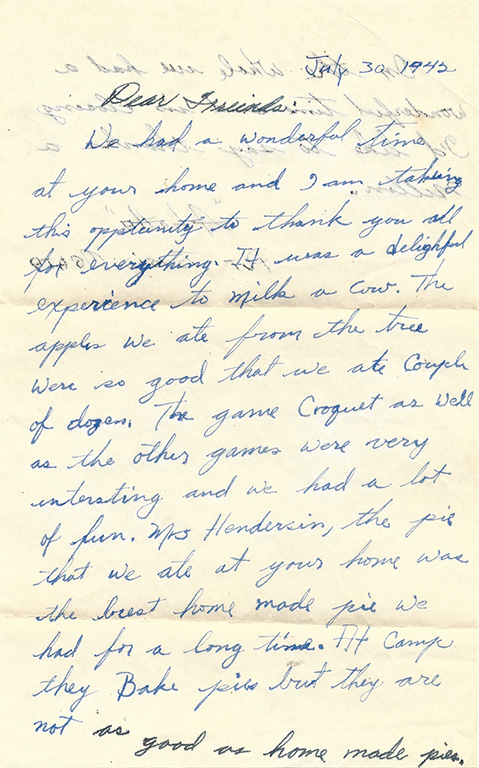 July 30, 1942
Dear Friends:
We had a wonderful time
at your home and I am taking
this opptunity to thank you all
for everything. It was a delighful
experience to milk a cow. The
apples we ate from the tree
were so good that we ate Couple
of dozen. The game Croquet as well
as the other games were very
intersting and we had a lot
of fun. Mrs Hendersin, the pie
that we ate at your home was
the best home made pie we
had for a long time. At Camp
they Bake pies but they are
not as good as home made pies.